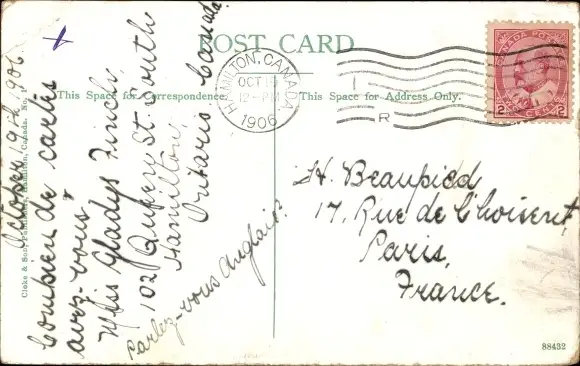 POST CARD
This Space for Correspondence.
This Space for Address Only.
HAMILTON, CANADA
OCT 19
12-PM
1906
R
CANADA POSTAGE
2 2
TWO CENTS
October 19th, 1906
Combien de cartes
avez-vous,
Miss Gladys Finch
102 St. South
Hamilton,
Ontario Canada.
Parlez-vous Anglais?
H. Beaupied
17, Rue de
Paris,
France.
Cloke & Son, Hamilton, Canada. No.
88432